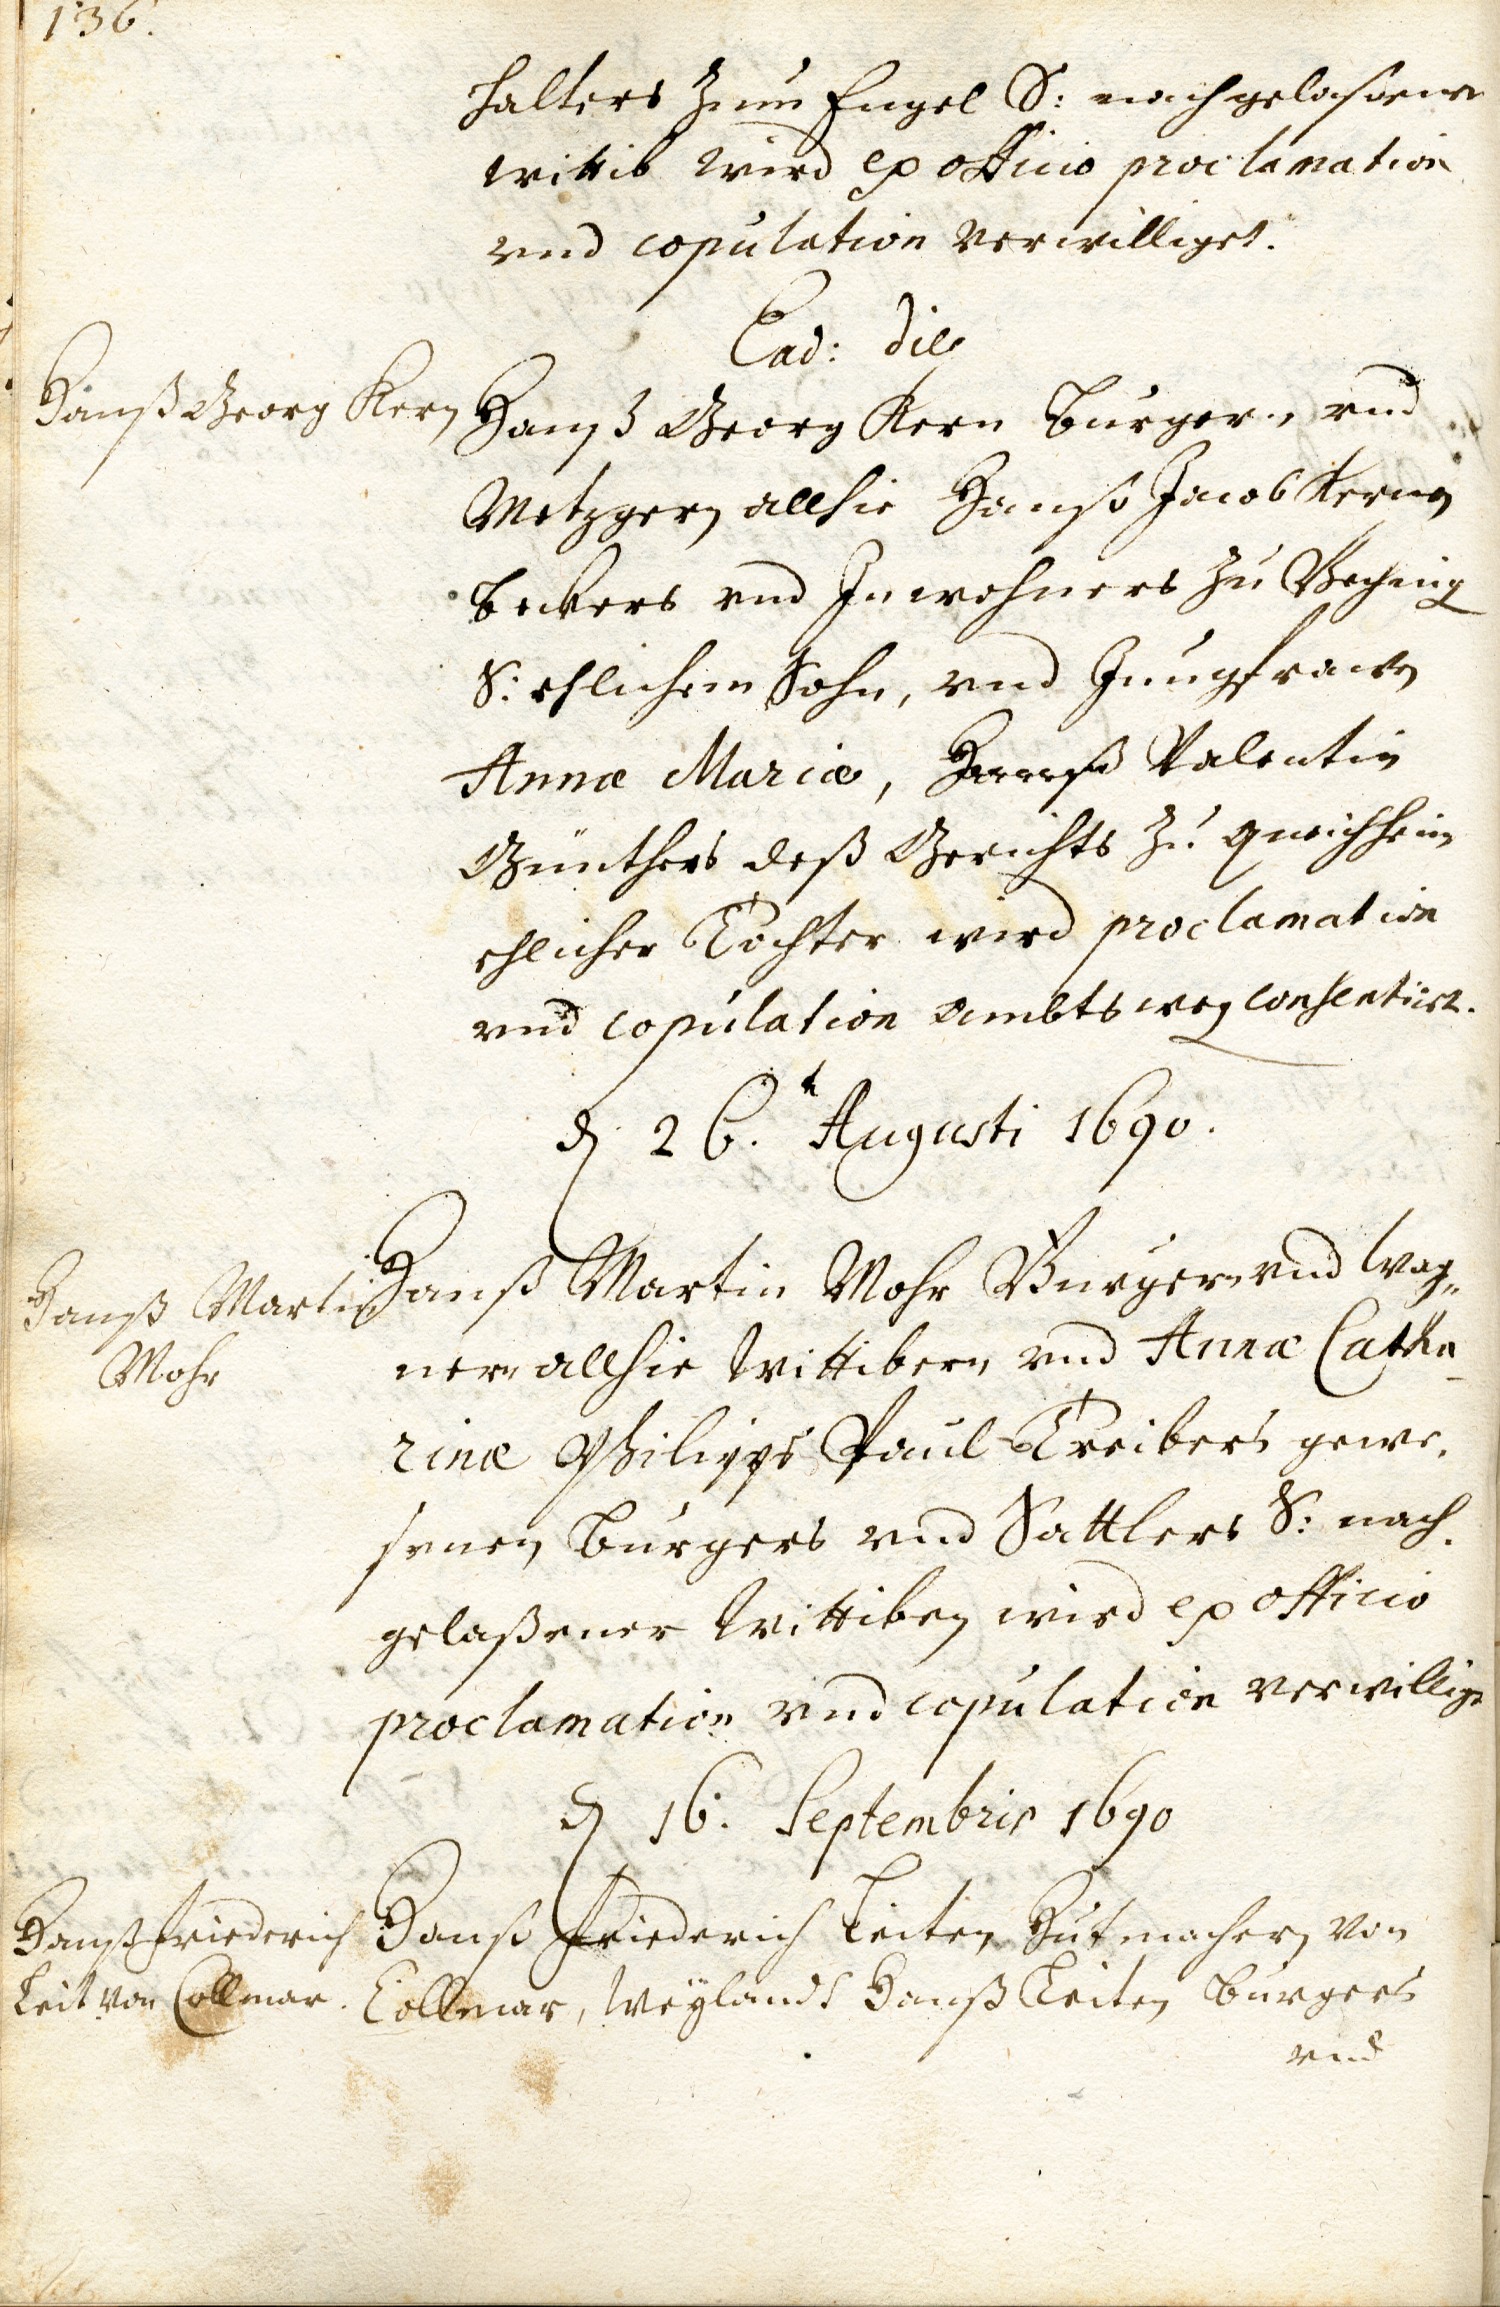 136.
halters Zum Engel S: nachgelaßener
wittib wird ex officio proclamation
vnd copulation verwilliget.
Ead: die
Hanß Georg Kern
Hanß Georg Kern burgern vnd
Metzgern allhie Hanß Jacob Kernen
beckers vnd Inwohners zu
S: ehlichem Sohn, vnd Jungfrawen
Annæ Mariæ, Hannß Valentin
Günthers deß Gerichts zu queichheim
ehlicher Tochter wird proclamation
vnd copulation ambtsweg consentirt.
d 26.t Augusti 1690.
Hanß Martin
Mohr
Hanß Martin Mohr Burgern vnd Wag„
nern allhie Wittibern vnd Annæ Catha
rinæ Philipps Paul Treibers gewe.
senen burgers vnd Sattlers S: nach.
gelaßener Wittiben wird ex officio
proclamation vnd copulation verwillige
d 16. Septembris 1690
Hanß Friederich
Leit von Collmar.
Hanß Friederich Leiten Hutmachern von
Collmar, Weÿlandt Hanß Leiten burgers
vnd